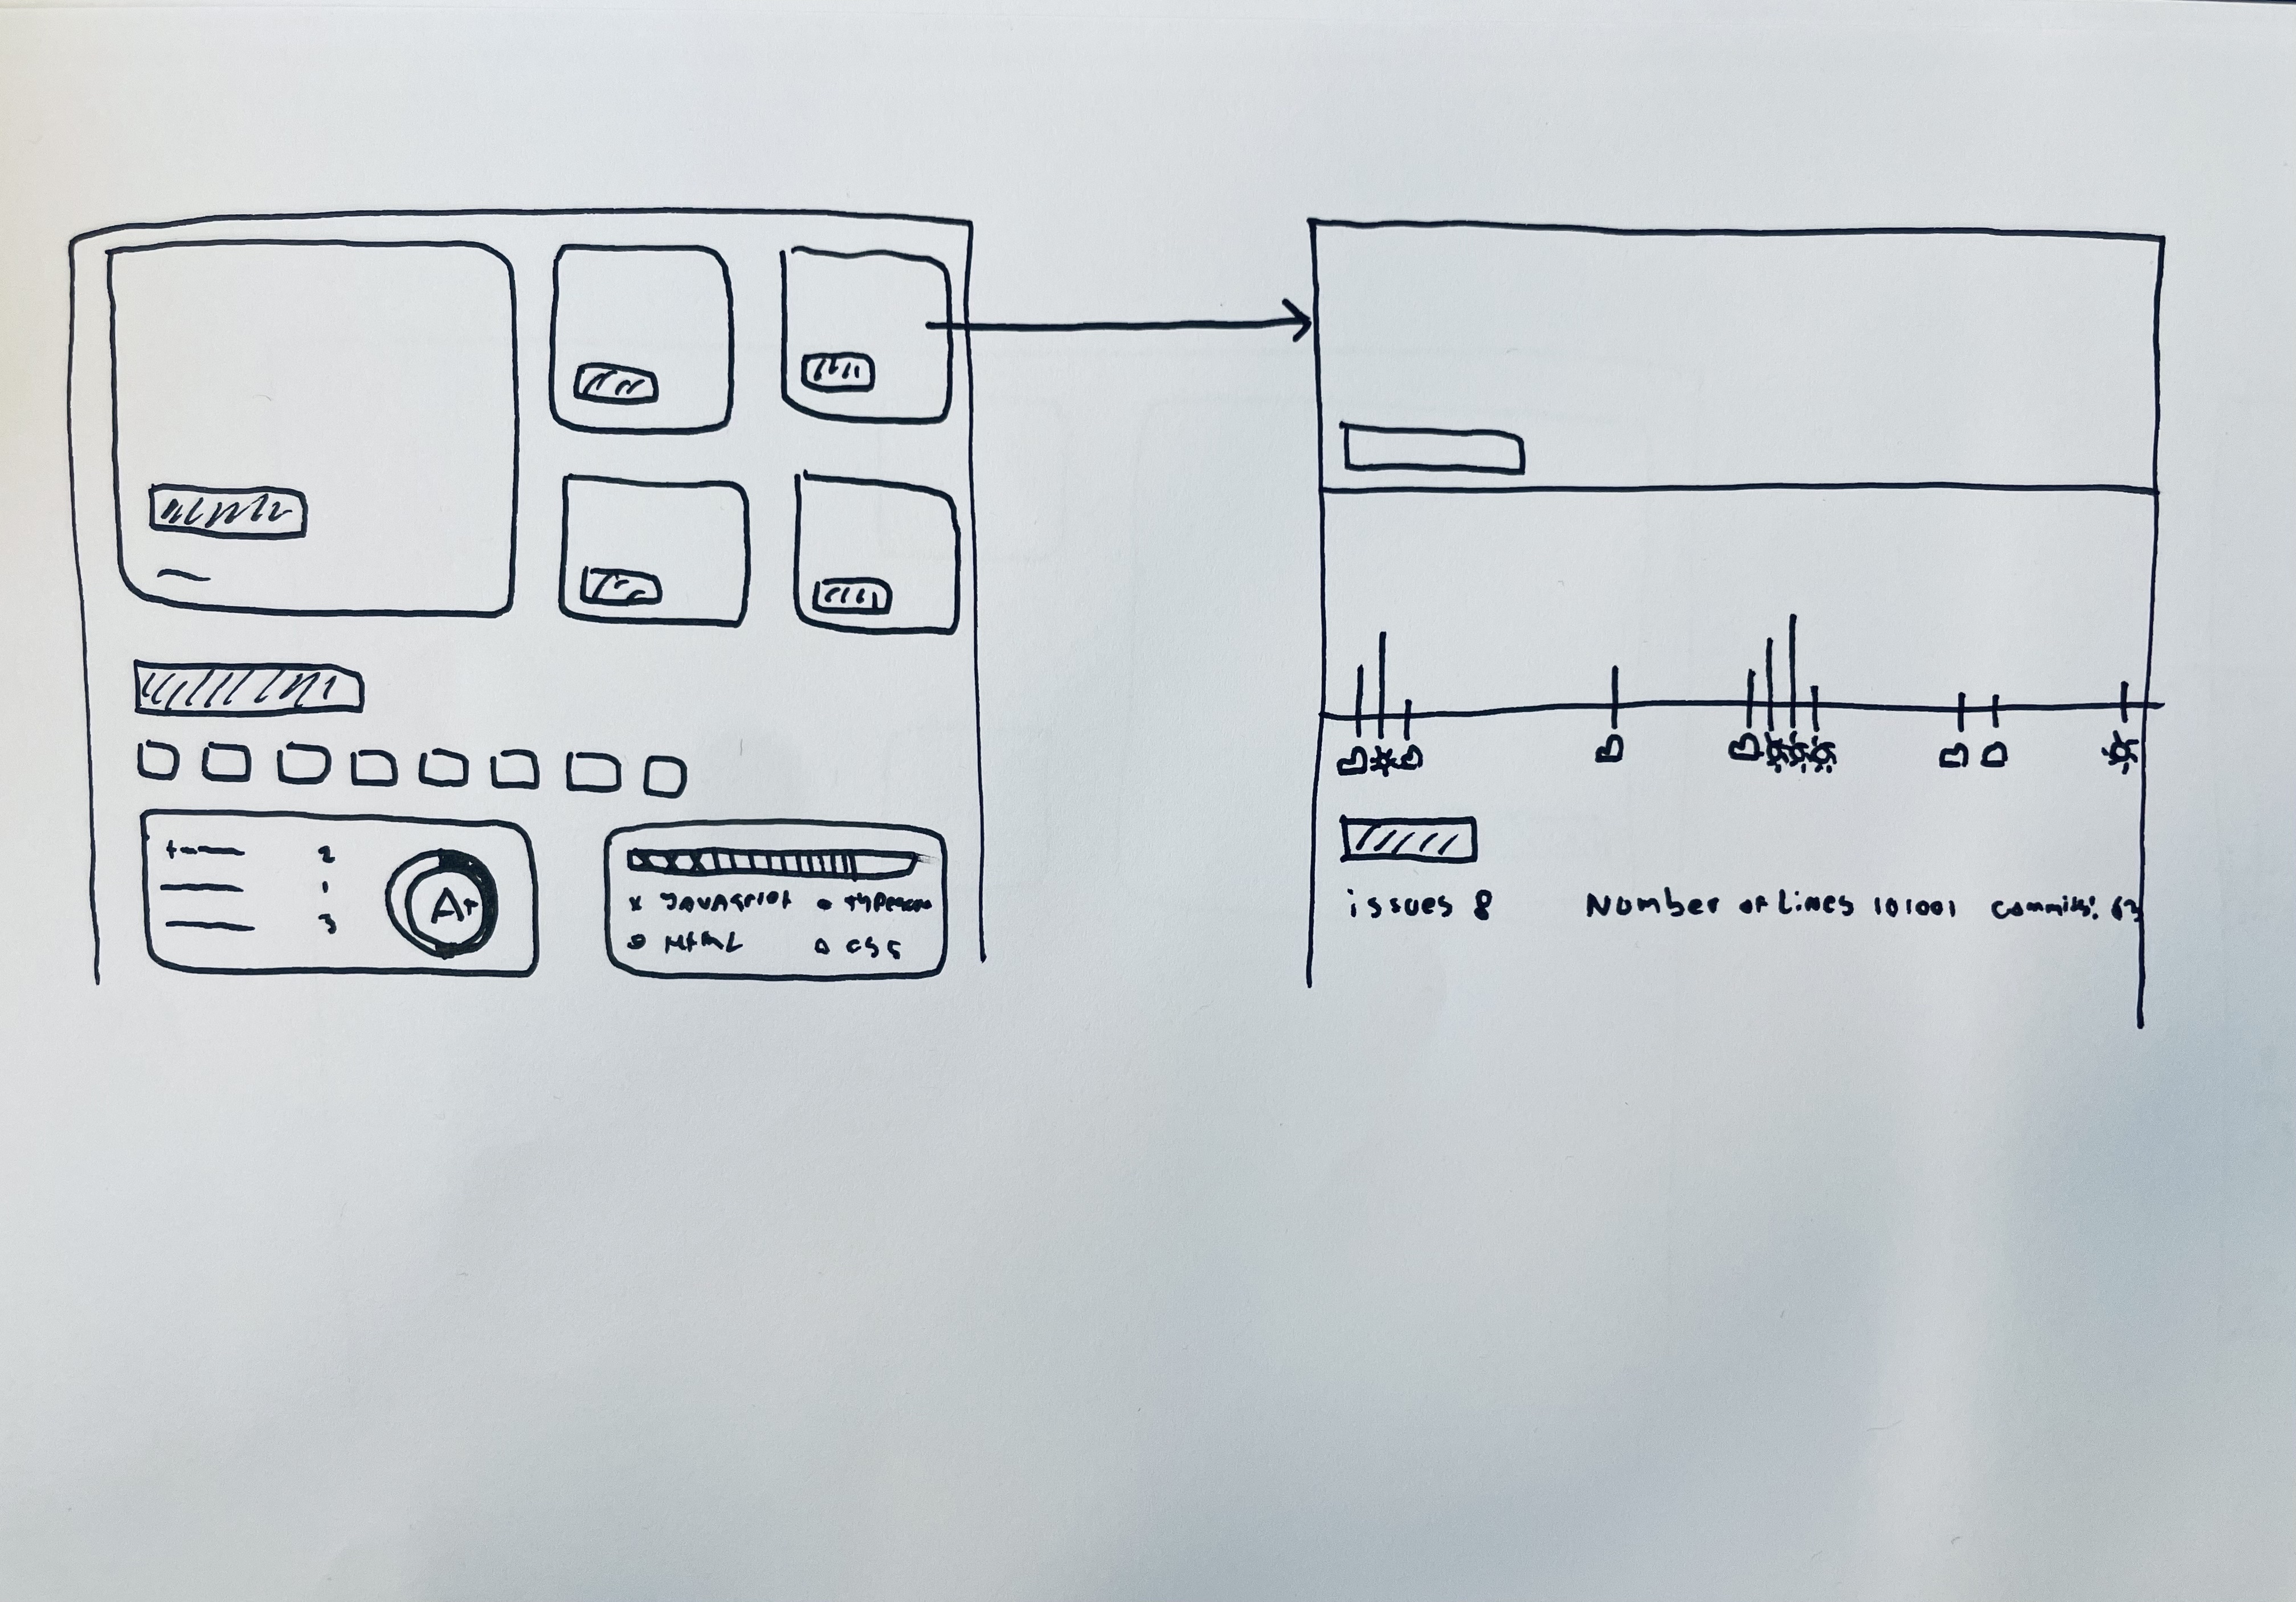 2
1
3
A+
JAVASCRIPT
HTML
CSS
issues 8 Number of Lines 101001 commits: 63